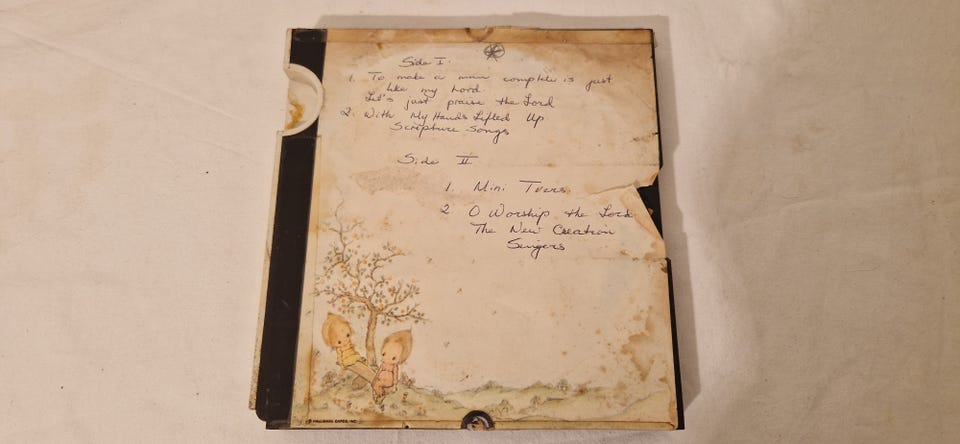 Side I.
1. To make a man complete is just
like my Lord
Let's just praise the Lord
2. With My Hands Lifted Up
Scripture Songs
Side II
1. Mini
2. O Worship the Lord
The New Creation
Singers
© HALLMARK CARDS, INC.